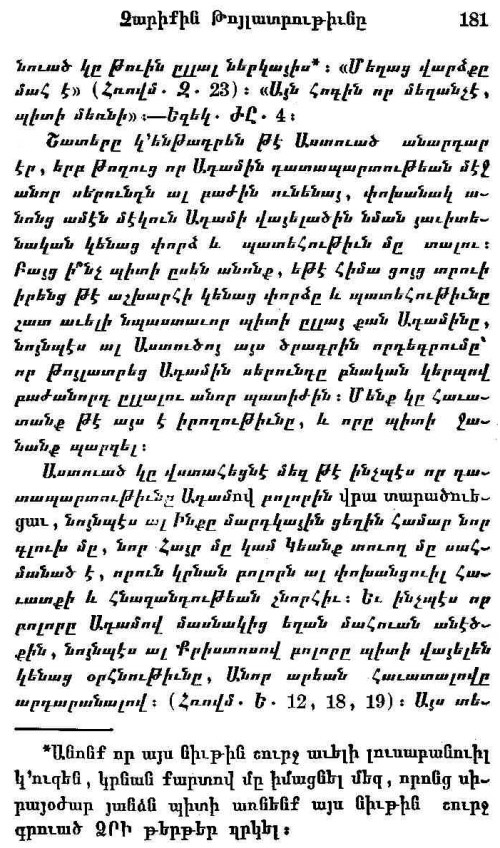 Չարիքին Թոյլատրութիւնը 181
նուած կը թուին ըլլալ ներկայիս*։ «Մեղաց վարձքը
մահ է» (Հռովմ. Զ. 23)։ «Այն հոգին որ մեղանչէ,
պիտի մեռնի»։—Եզեկ. ԺԸ. 4։
Շատերը կ՚ենթադրեն թէ Աստուած անարդար
էր, երբ թողուց որ Ադամին դատապարտութեան մէջ
անոր սերունդն ալ բաժին ունենայ, փոխանակ ա-
նոնց ամէն մէկուն Ադամի վայելածին նման յաւիտե-
նական կենաց փորձ և պատեհութիւն մը տալու։
Բայց ի՞նչ պիտի ըսեն անոնք, եթէ հիմա ցոյց տրուի
իրենց թէ աշխարհի կենաց փորձը և պատեհութիւնը
շատ աւելի նպաստաւոր պիտի ըլլայ քան Ադամինը,
նոյնպէս ալ Աստուծոյ այս ծրագրին որդեգրումը՝
որ թոյլատրեց Ադամին սերունդը բնական կերպով
բաժանորդ ըլլալու անոր պատիժին։ Մենք կը հաւա-
տանք թէ այս է իրողութիւնը, և որը պիտի ջա-
նանք պարզել։
Աստուած կը վստահեցնէ մեզ թէ ինչպէս որ դա-
տապարտութիւնը Ադամով բոլորին վրա տարածուե-
ցաւ, նոյնպէս ալ Ինքը մարդկային ցեղին համար նոր
գլուխ մը, նոր Հայր մը կամ Կեանք տուող մը սահ-
մանած է, որուն կրնան բոլորն ալ փոխանցուիլ հա-
ւատքի և հնազանդութեան շնորհիւ։ Եւ ինչպէս որ
բոլորը Ադամով մասնակից եղան մահուան անէծ-
քին, նոյնպէս ալ Քրիստոսով բոլորը պիտի վայելեն
կենաց օրհնութիւնը, Անոր արեան հաւատալովը
արդարանալով։ (Հռովմ. Ե. 12, 18, 19)։ Այս տե-
*Անոնք որ այս նիւթին շուրջ աւելի լուսաբանուիլ
կ՚ուզեն, կրնան քարտով մը իմացնել մեզ, որոնց սի-
րայօժար յանձն պիտի առնենք այս նիւթին շուրջ
գրուած ՁՐԻ թերթեր ղրկել։